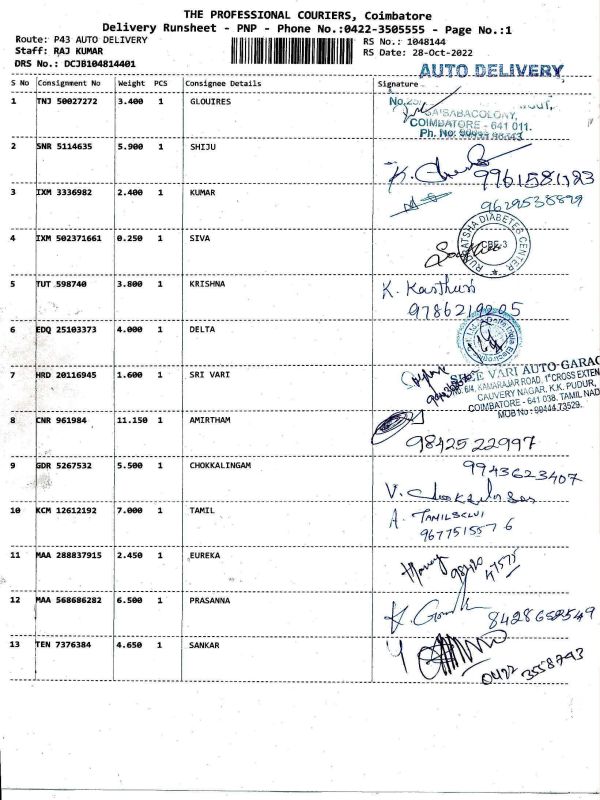 THE PROFESSIONAL COURIERS, Coimbatore
Delivery Runsheet - PNP - Phone No.:0422-3505555 - Page No.:1
Route: P43 AUTO DELIVERY
Staff: RAJ KUMAR
DRS No.: DCJB104814401
RS No.: 1048144
RS Date: 28-Oct-2022
AUTO DELIVERY
S No Consignment No Weight PCS Consignee Details Signature
1 TNJ 50027272 3.400 1 GLOUIRES
SAIBABACOLONY,
COIMBATORE - 641 011.
2 SNR 5114635 5.900 1 SHIJU
3 IXM 3336982 2.400 1 KUMAR
9629538899
4 IXM 502371661 0.250 1 SIVA
DIABETES CENTER
CBE-3
5 TUT 598740 3.800 1 KRISHNA
K. Kasthuri
9786219205
6 EDQ 25103373 4.000 1 DELTA
7 HRD 20116945 1.600 1 SRI VARI
SREE VARI AUTO GARAG
NO. 6/4, KAMARAJAR ROAD, 1st CROSS EXTEN
CAUVERY NAGAR, K.K. PUDUR,
COIMBATORE - 641 038. TAMIL NAD
MOB No : 99444 73529.
8 CNR 961984 11.150 1 AMIRTHAM
98425 22997
9 GDR 5267532 5.500 1 CHOKKALINGAM
9943623407
10 KCM 12612192 7.000 1 TAMIL
A. TAMILSELVI
9677515576
11 MAA 288837915 2.450 1 EUREKA
12 MAA 568686282 6.500 1 PRASANNA
8428652549
13 TEN 7376384 4.650 1 SANKAR
0422 3558793